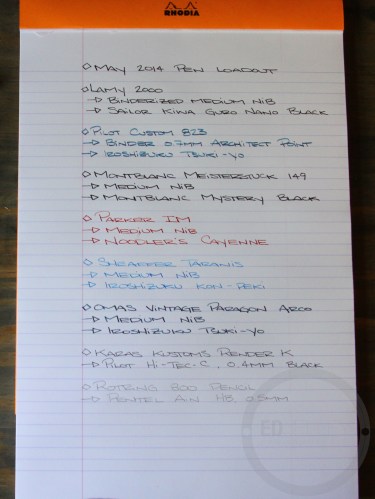 RHODIA
May 2014 Pen Loadout
Lamy 2000
→ Binderized Medium Nib
→ Sailor Kiwa Guro Nano Black
Pilot Custom 823
→ Binder 0.7mm Architect Point
→ Iroshizuku Tsuki-Yo
Montblanc Meisterstuck 149
→ Medium Nib
→ Montblanc Mystery Black
Parker IM
→ Medium Nib
→ Noodler's Cayenne
Sheaffer Taranis
→ Medium Nib
→ Iroshizuku Kon-Peki
Omas Vintage Paragon Arco
→ Medium Nib
→ Iroshizuku Tsuki-Yo
Karas Kustoms Render K
→ Pilot Hi-Tec-C, 0.4mm Black
Rotring 800 Pencil
→ Pentel Ain HB 0.5mm